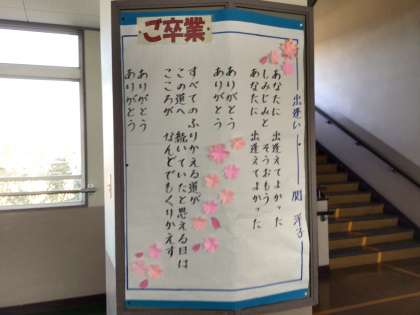 ご卒業
出逢い 関 洋子
あなたに 出逢えてよかった
しみじみと そうおもう
あなたに 出逢えてよかった
ありがとう
ありがとう
すべてのふりかえる道が
この道へ 続いていたと思える日は
こころが なんどでもくりかえす
ありがとう
ありがとう